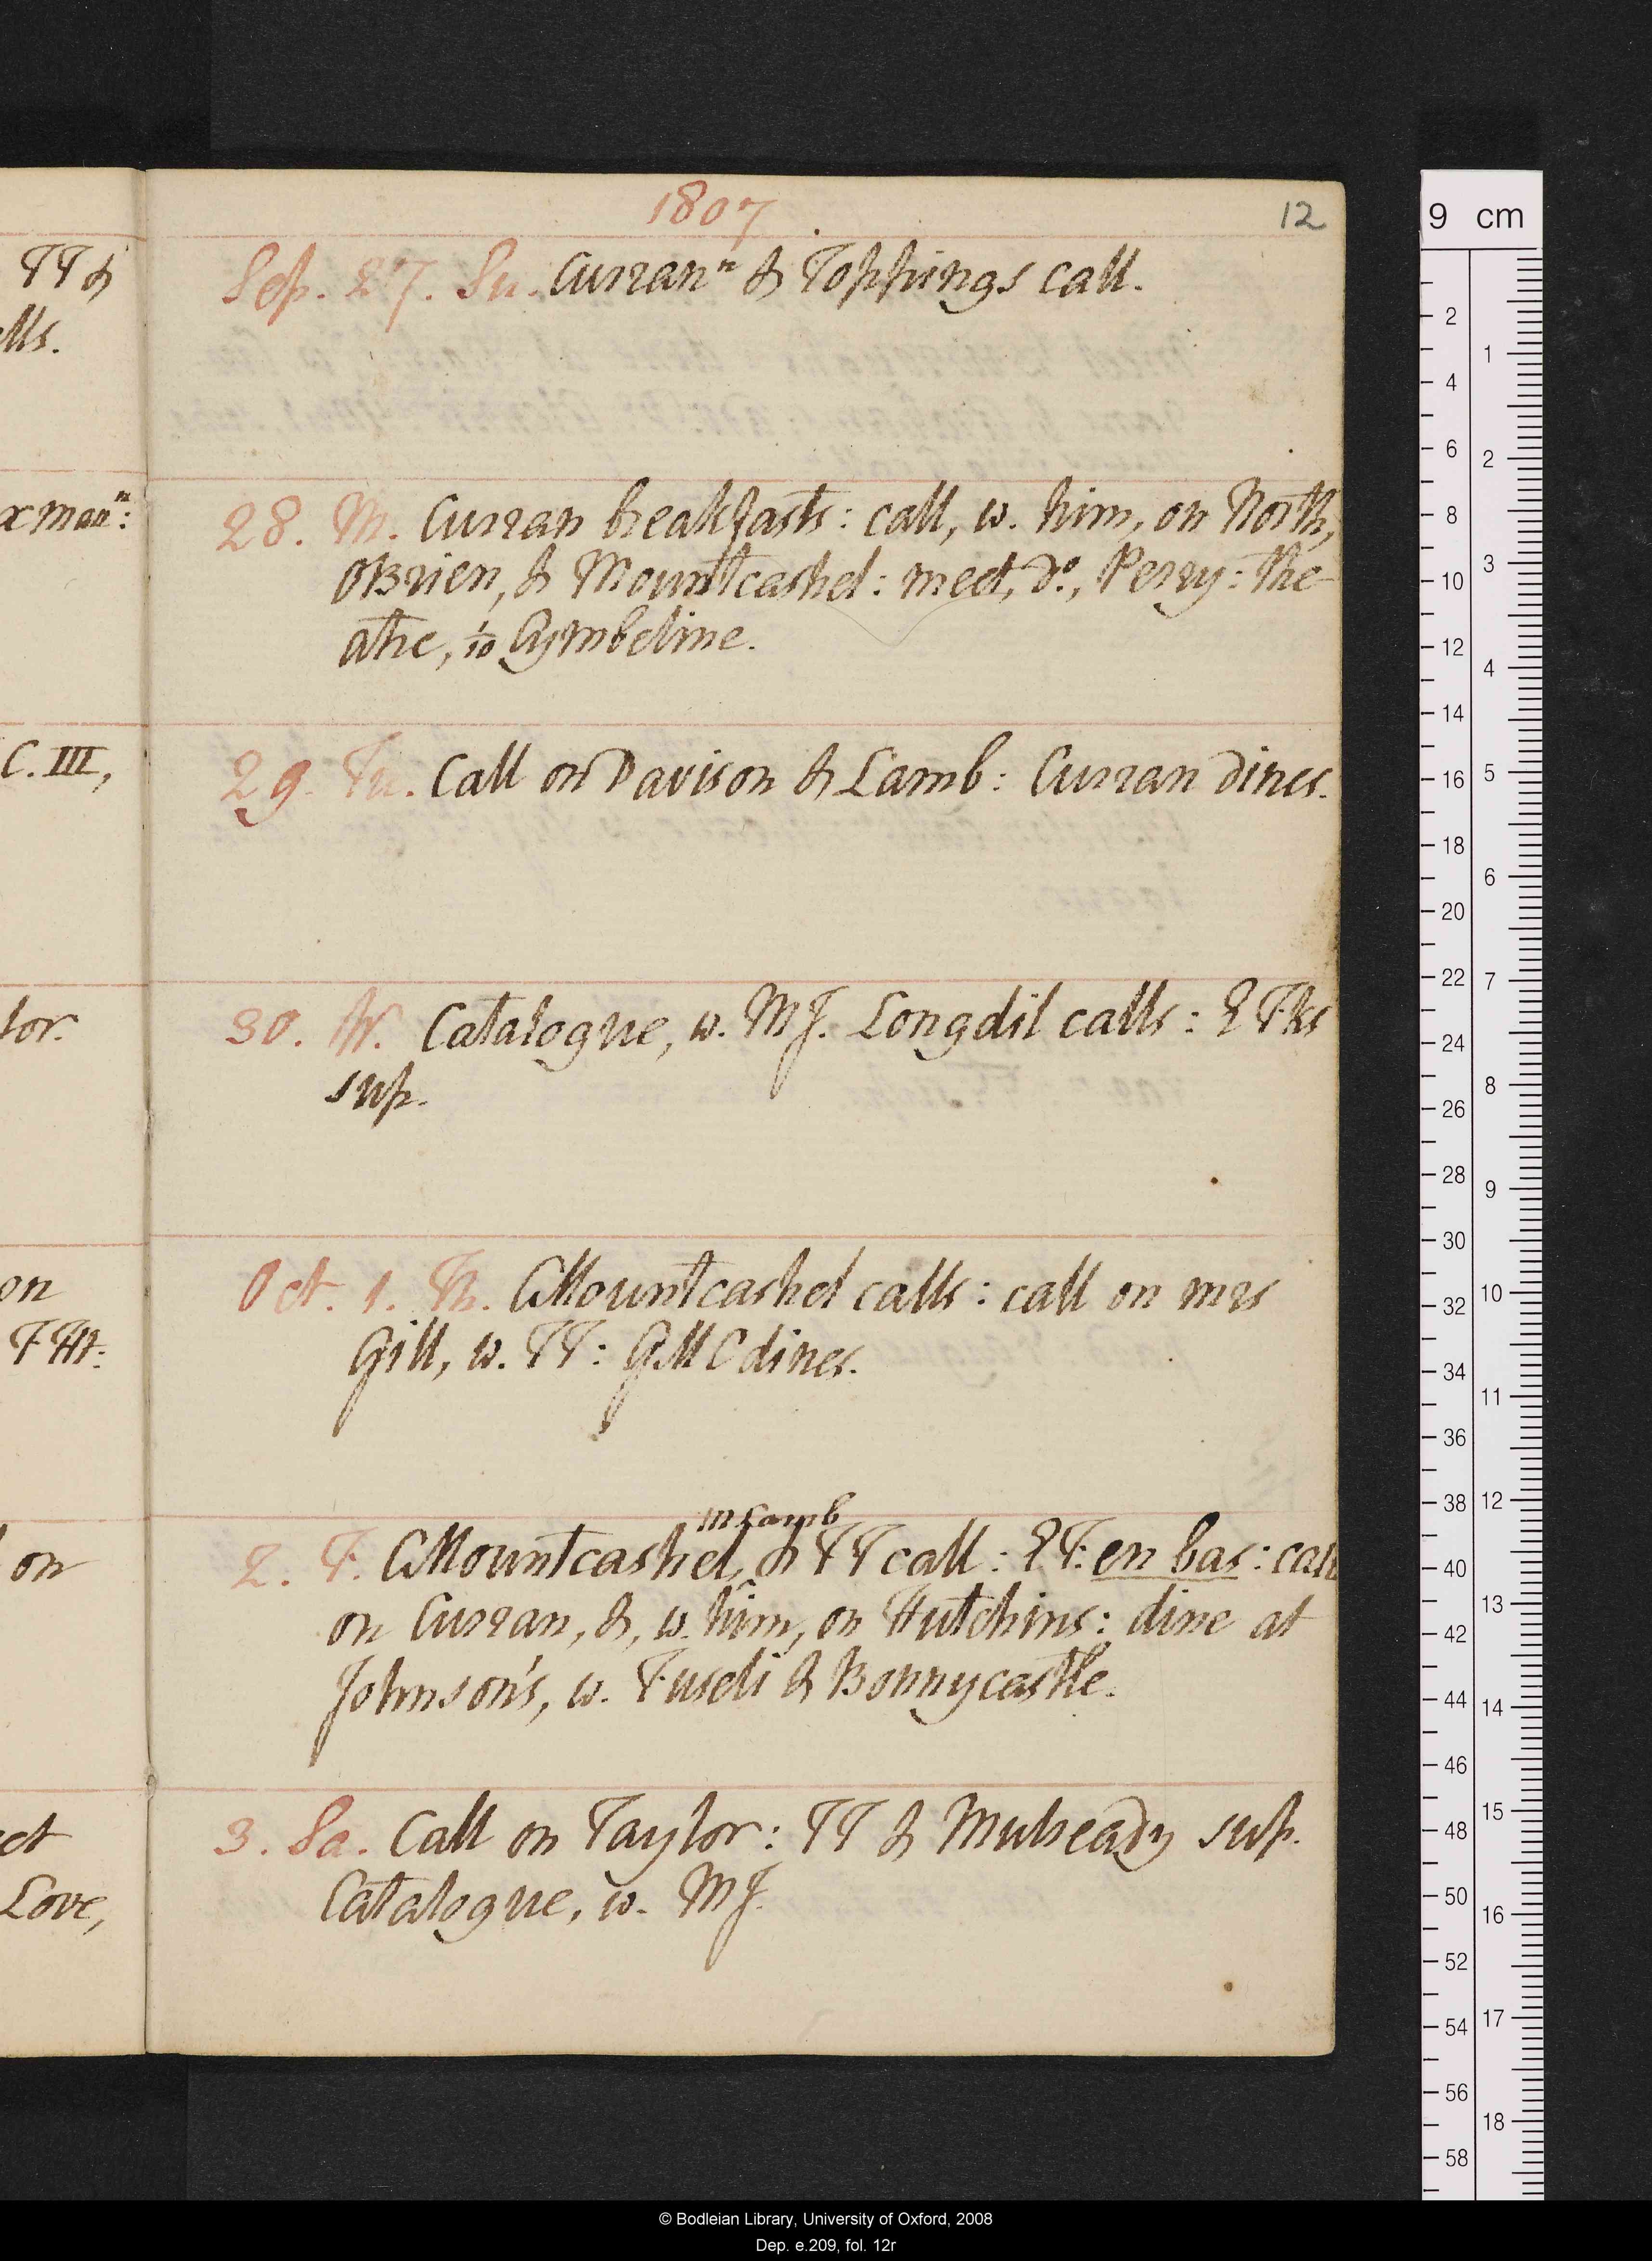 1807
12
Sep. 27. Su. Curran⁰ & Toppings call.
28. M. Curran breakfasts: call, w. him, on North,
OBrien, & Mountcashel: meet, d⁰., Perry: the-
atre, ¹⁄₁₀ Cymbeline.
29. Tu. Call on Davison & Lamb: Curran dines.
30. W. Catalogue, w. MJ. Longdil calls: E Fks
sup.
Oct. 1. Th. CMountcashel calls: call on mrs
Gill, w. TT: GMC dines.
M Lamb
2. F. CMountcashel, & TT call: E F. en bas: call
on Curran, &, w. him, on Hutchins: dine at
Johnson's, w. Fuseli & Bonnycastle.
3. Sa. Call on Taylor: TT & Mulready sup.
Catalogue, w. MJ.
TT &
lls.
xmanⁿ:
C. III,
lor.
on
F Ht:
on
ct
Love,
9 cm
2
4
6
8
10
12
14
16
18
20
22
24
26
28
30
32
34
36
38
40
42
44
46
48
50
52
54
56
58
1
2
3
4
5
6
7
8
9
10
11
12
13
14
15
16
17
18
© Bodleian Library, University of Oxford, 2008
Dep. e.209, fol. 12r